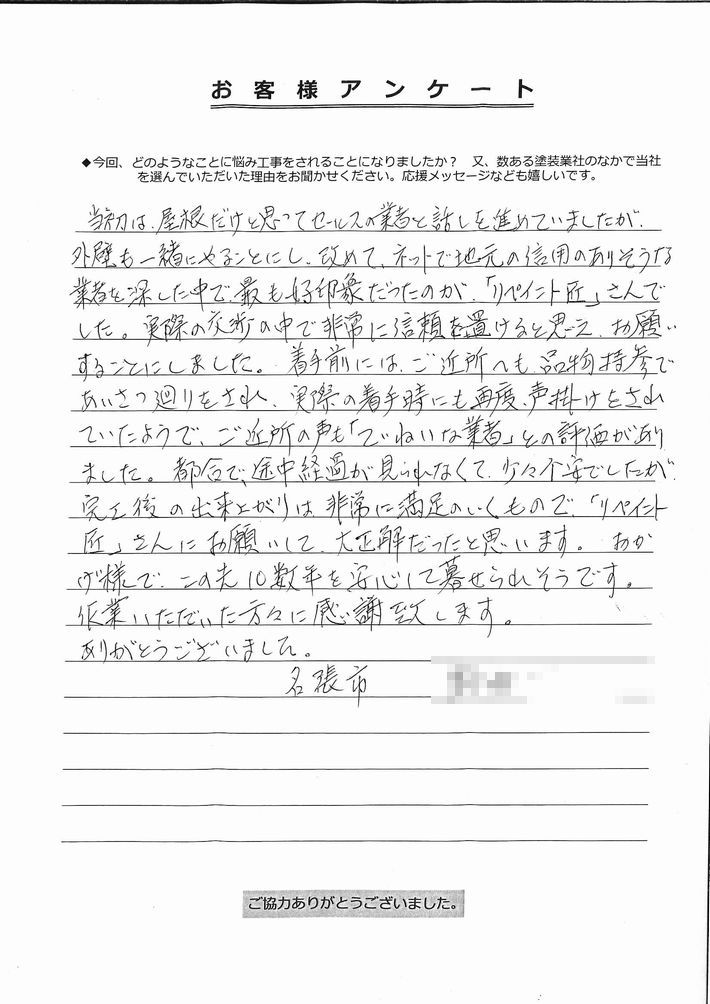 お客様アンケート
◆今回、どのようなことに悩み工事をされることになりましたか？　又、数ある塗装業社のなかで当社
を選んでいただいた理由をお聞かせください。応援メッセージなども嬉しいです。
当初は、屋根だけと思ってセールスの業者と話しを進めていましたが、
外壁も一緒にやることにし、改めて、ネットで地元の信用のありそうな
業者を探した中で最も好印象だったのが、「リペイント匠」さんで
した。実際の交渉の中で非常に信頼を置けると思え、お願い
することにしました。着手前には、ご近所へも品物持参で
あいさつ廻りをされ、実際の着手時にも再度、声掛けをされ
ていたようで、ご近所の声も「ていねいな業者」との評価があり
ました。都合で、途中経過が見られなくて、少々不安でしたが、
完工後の出来上がりは、非常に満足のいくもので、「リペイント
匠」さんにお願いして、大正解だったと思います。おか
げ様で、この先10数年を安心して暮せられそうです。
作業いただいた方々に感謝致します。
ありがとうございました。
名張市
ご協力ありがとうございました。